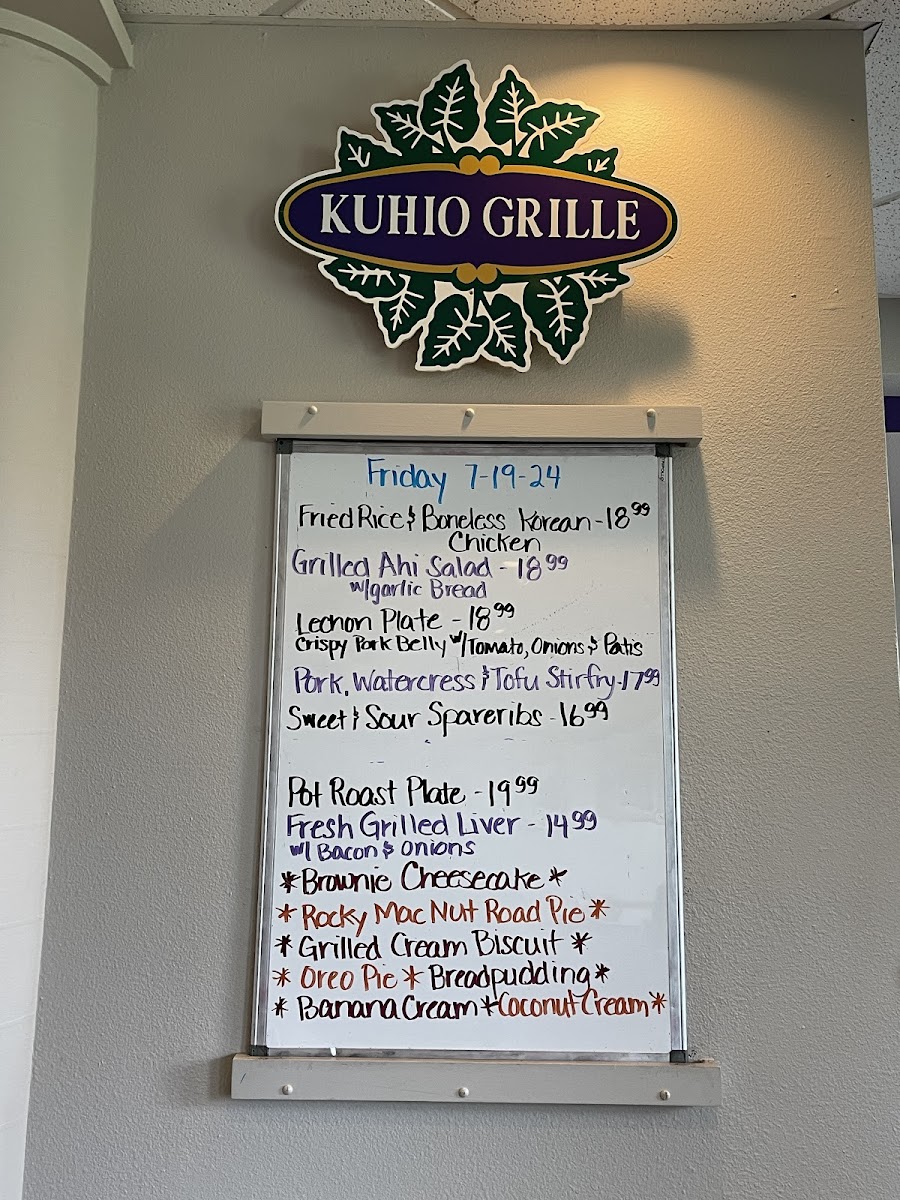 KUHIO GRILLE
Friday 7-19-24
Fried Rice & Boneless Korean - 18 99
Chicken
Grilled Ahi Salad - 18 99
w/garlic Bread
Lechon Plate - 18 99
Crispy Pork Belly w/Tomato, Onions & Patis
Pork, Watercress & Tofu Stirfry - 17 99
Sweet & Sour Spareribs - 16 99
Pot Roast Plate - 19 99
Fresh Grilled Liver - 14 99
w/ Bacon & Onions
*Brownie Cheesecake*
*Rocky Mac Nut Road Pie*
*Grilled Cream Biscuit*
*Oreo Pie* Breadpudding*
*Banana Cream*Coconut Cream*